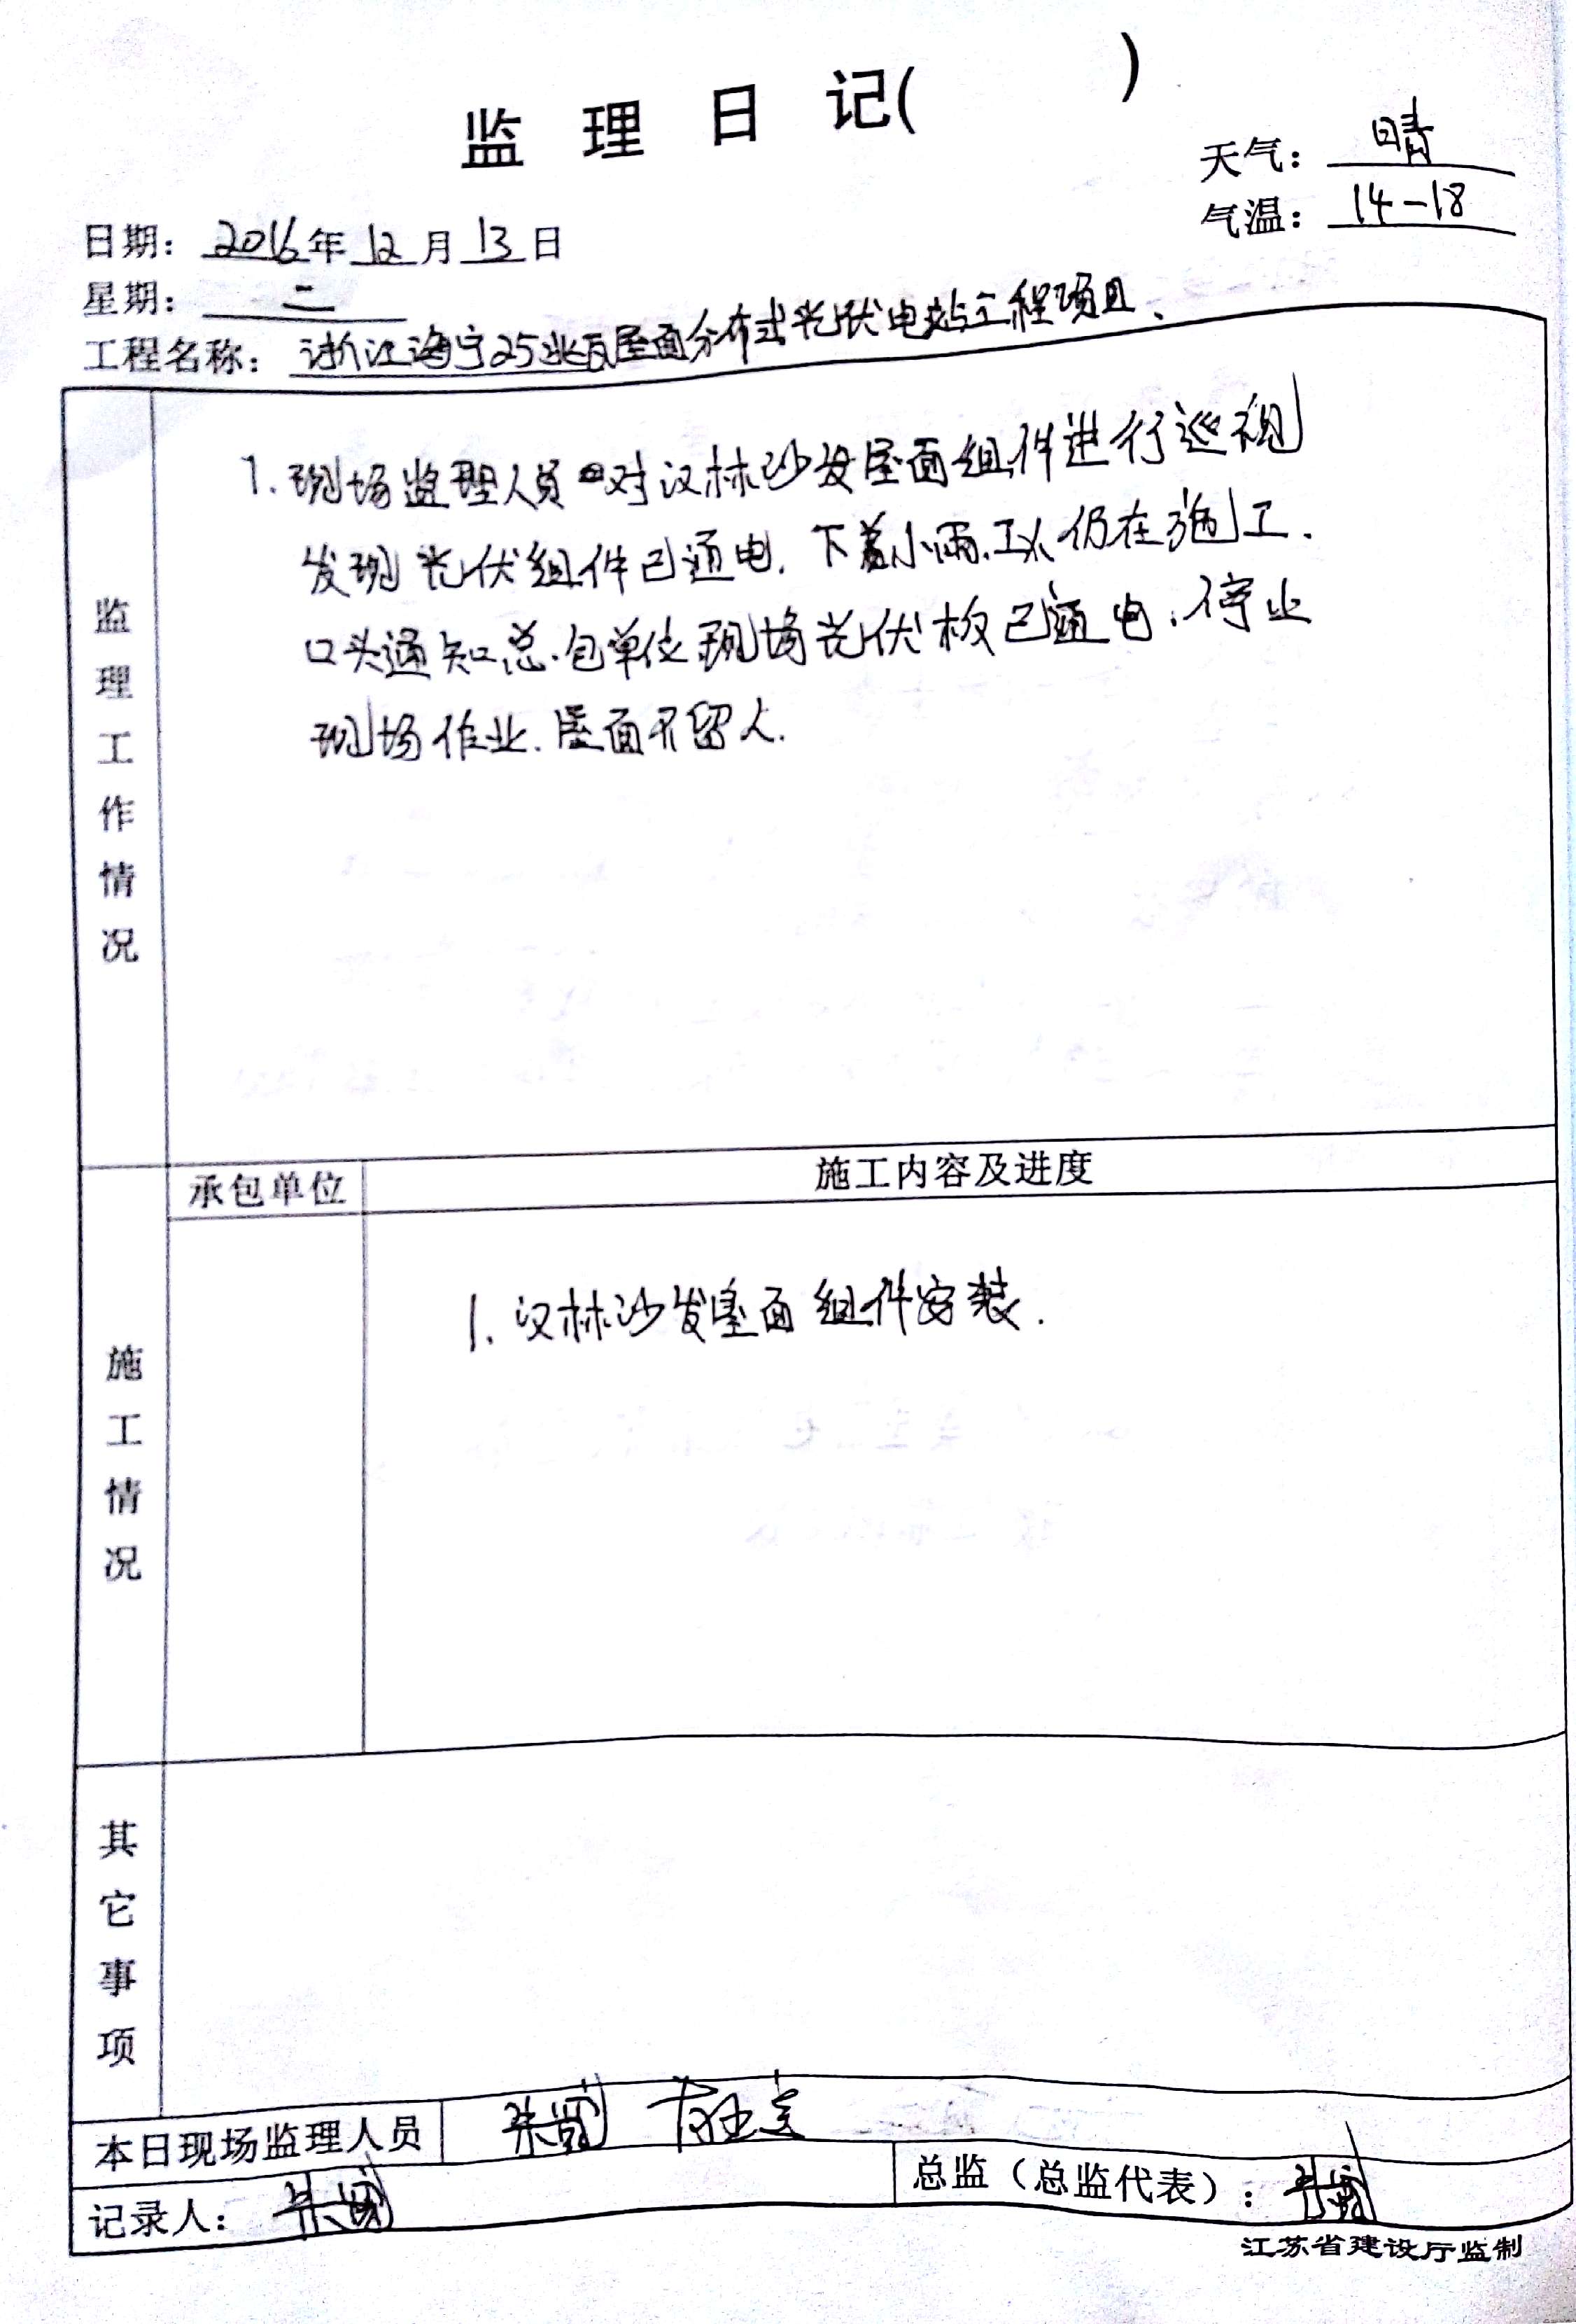 监理日记( )
天气：晴
气温：14-18
日期：2016年12月13日
星期：二
工程名称：浙江海宁25兆瓦屋面分布式光伏电站工程项目、
监理工作情况
1.现场监理人员对汉林沙发屋面组件进行巡视
发现光伏组件已通电.下着小雨.工人仍在施工.
口头通知总.包单位现场光伏板已通电.停止
现场作业.屋面不留人.
承包单位
施工内容及进度
施工情况
1.汉林沙发屋面组件安装.
其它事项
本日现场监理人员
记录人：
总监（总监代表）：
江苏省建设厅监制